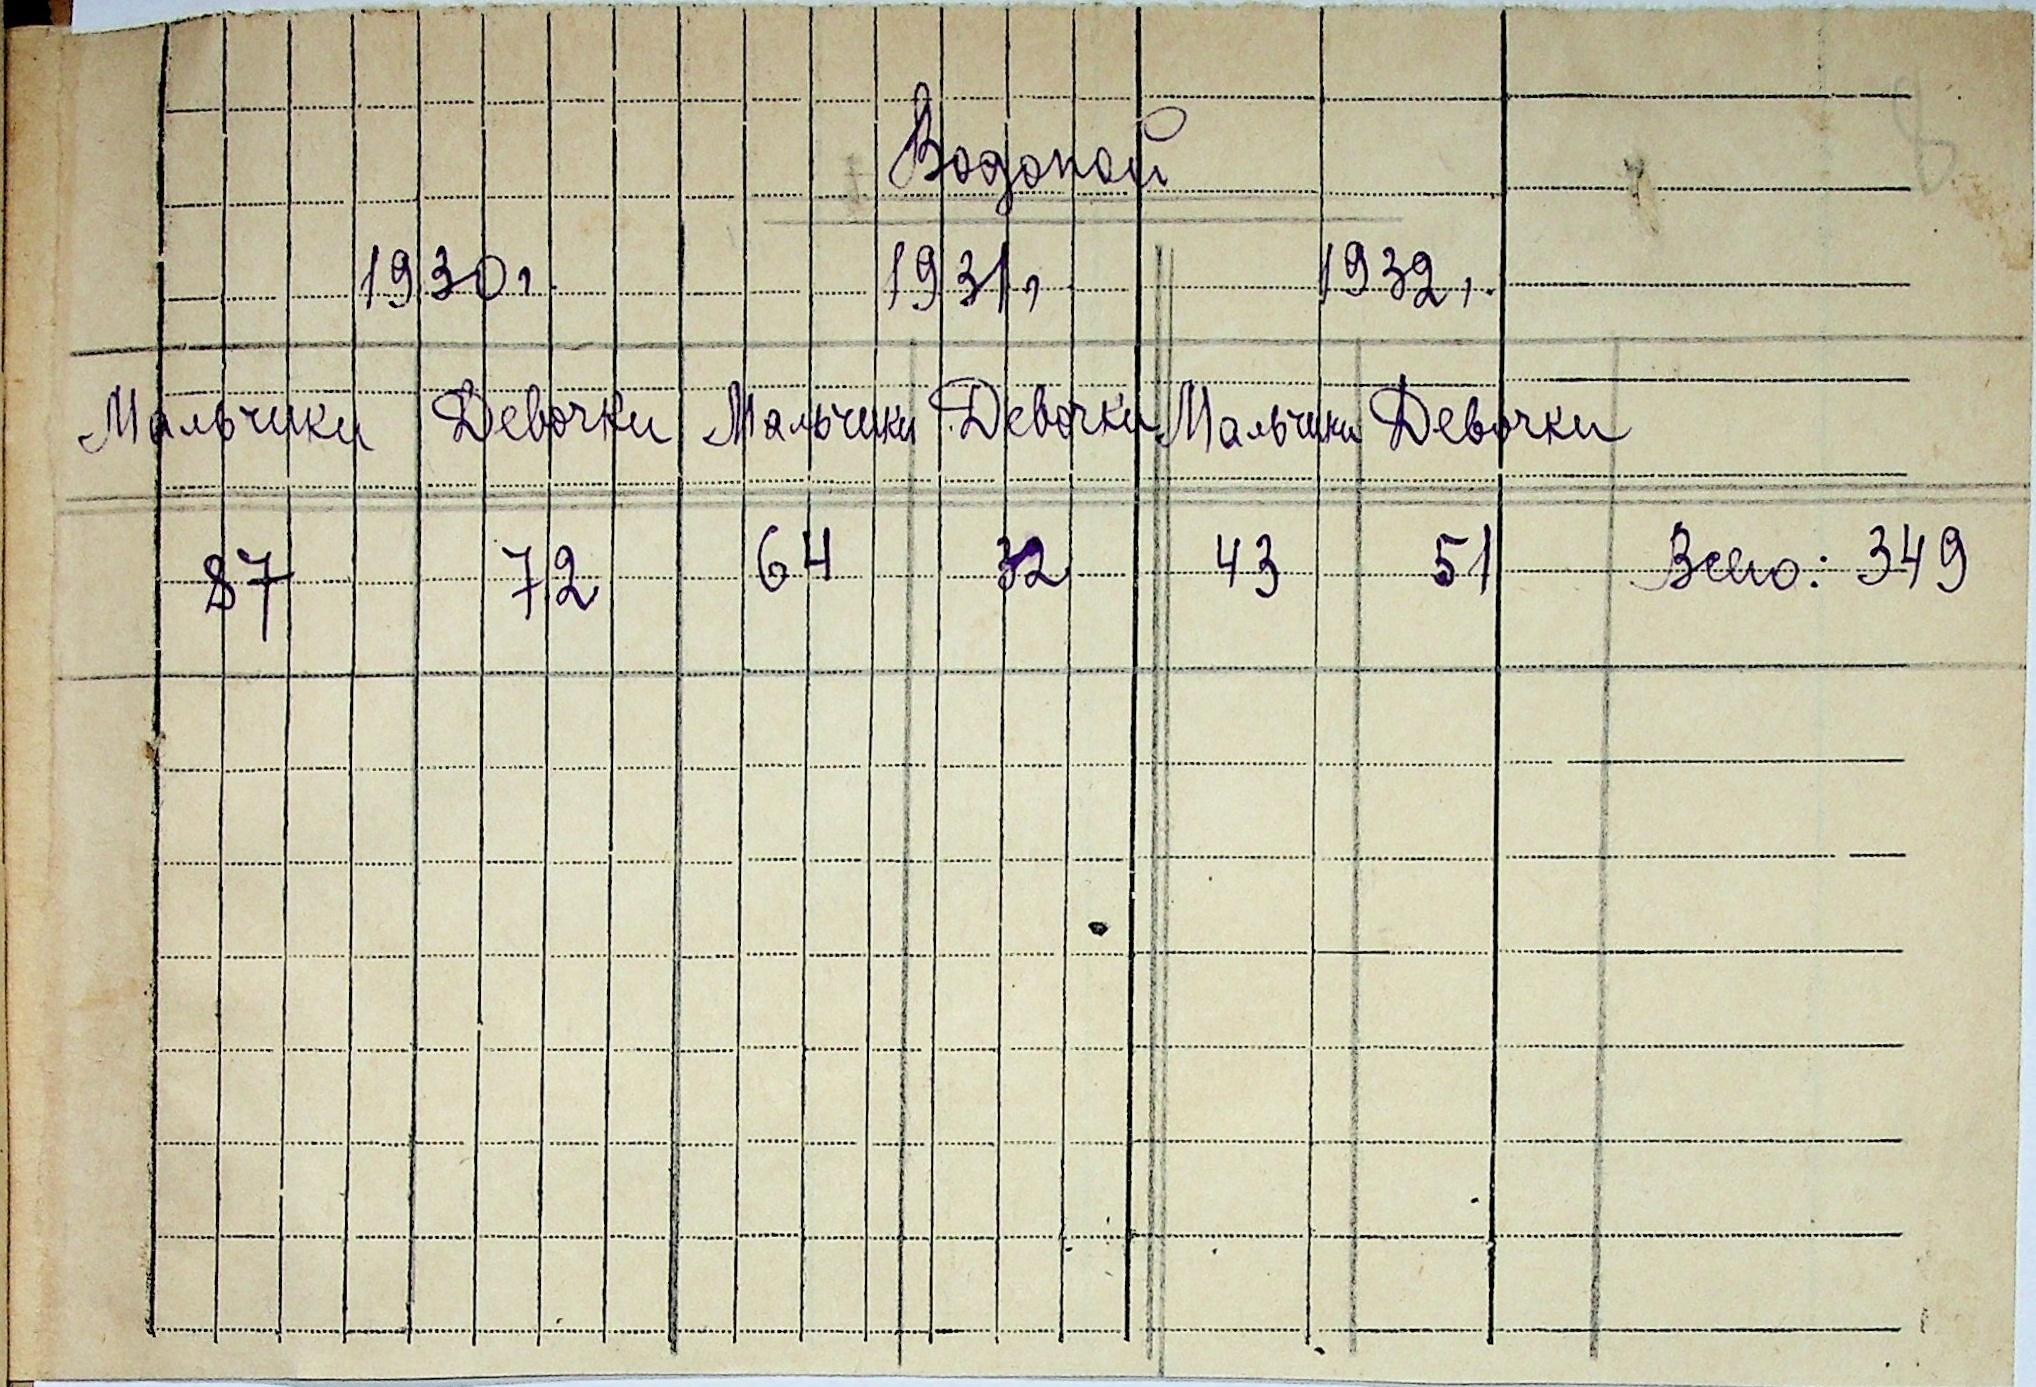 Водопой
1930, 1931, 1932,
Мальчики Девочки Мальчики Девочки Мальчики Девочки
87 72 64 32 43 51 Всего: 349